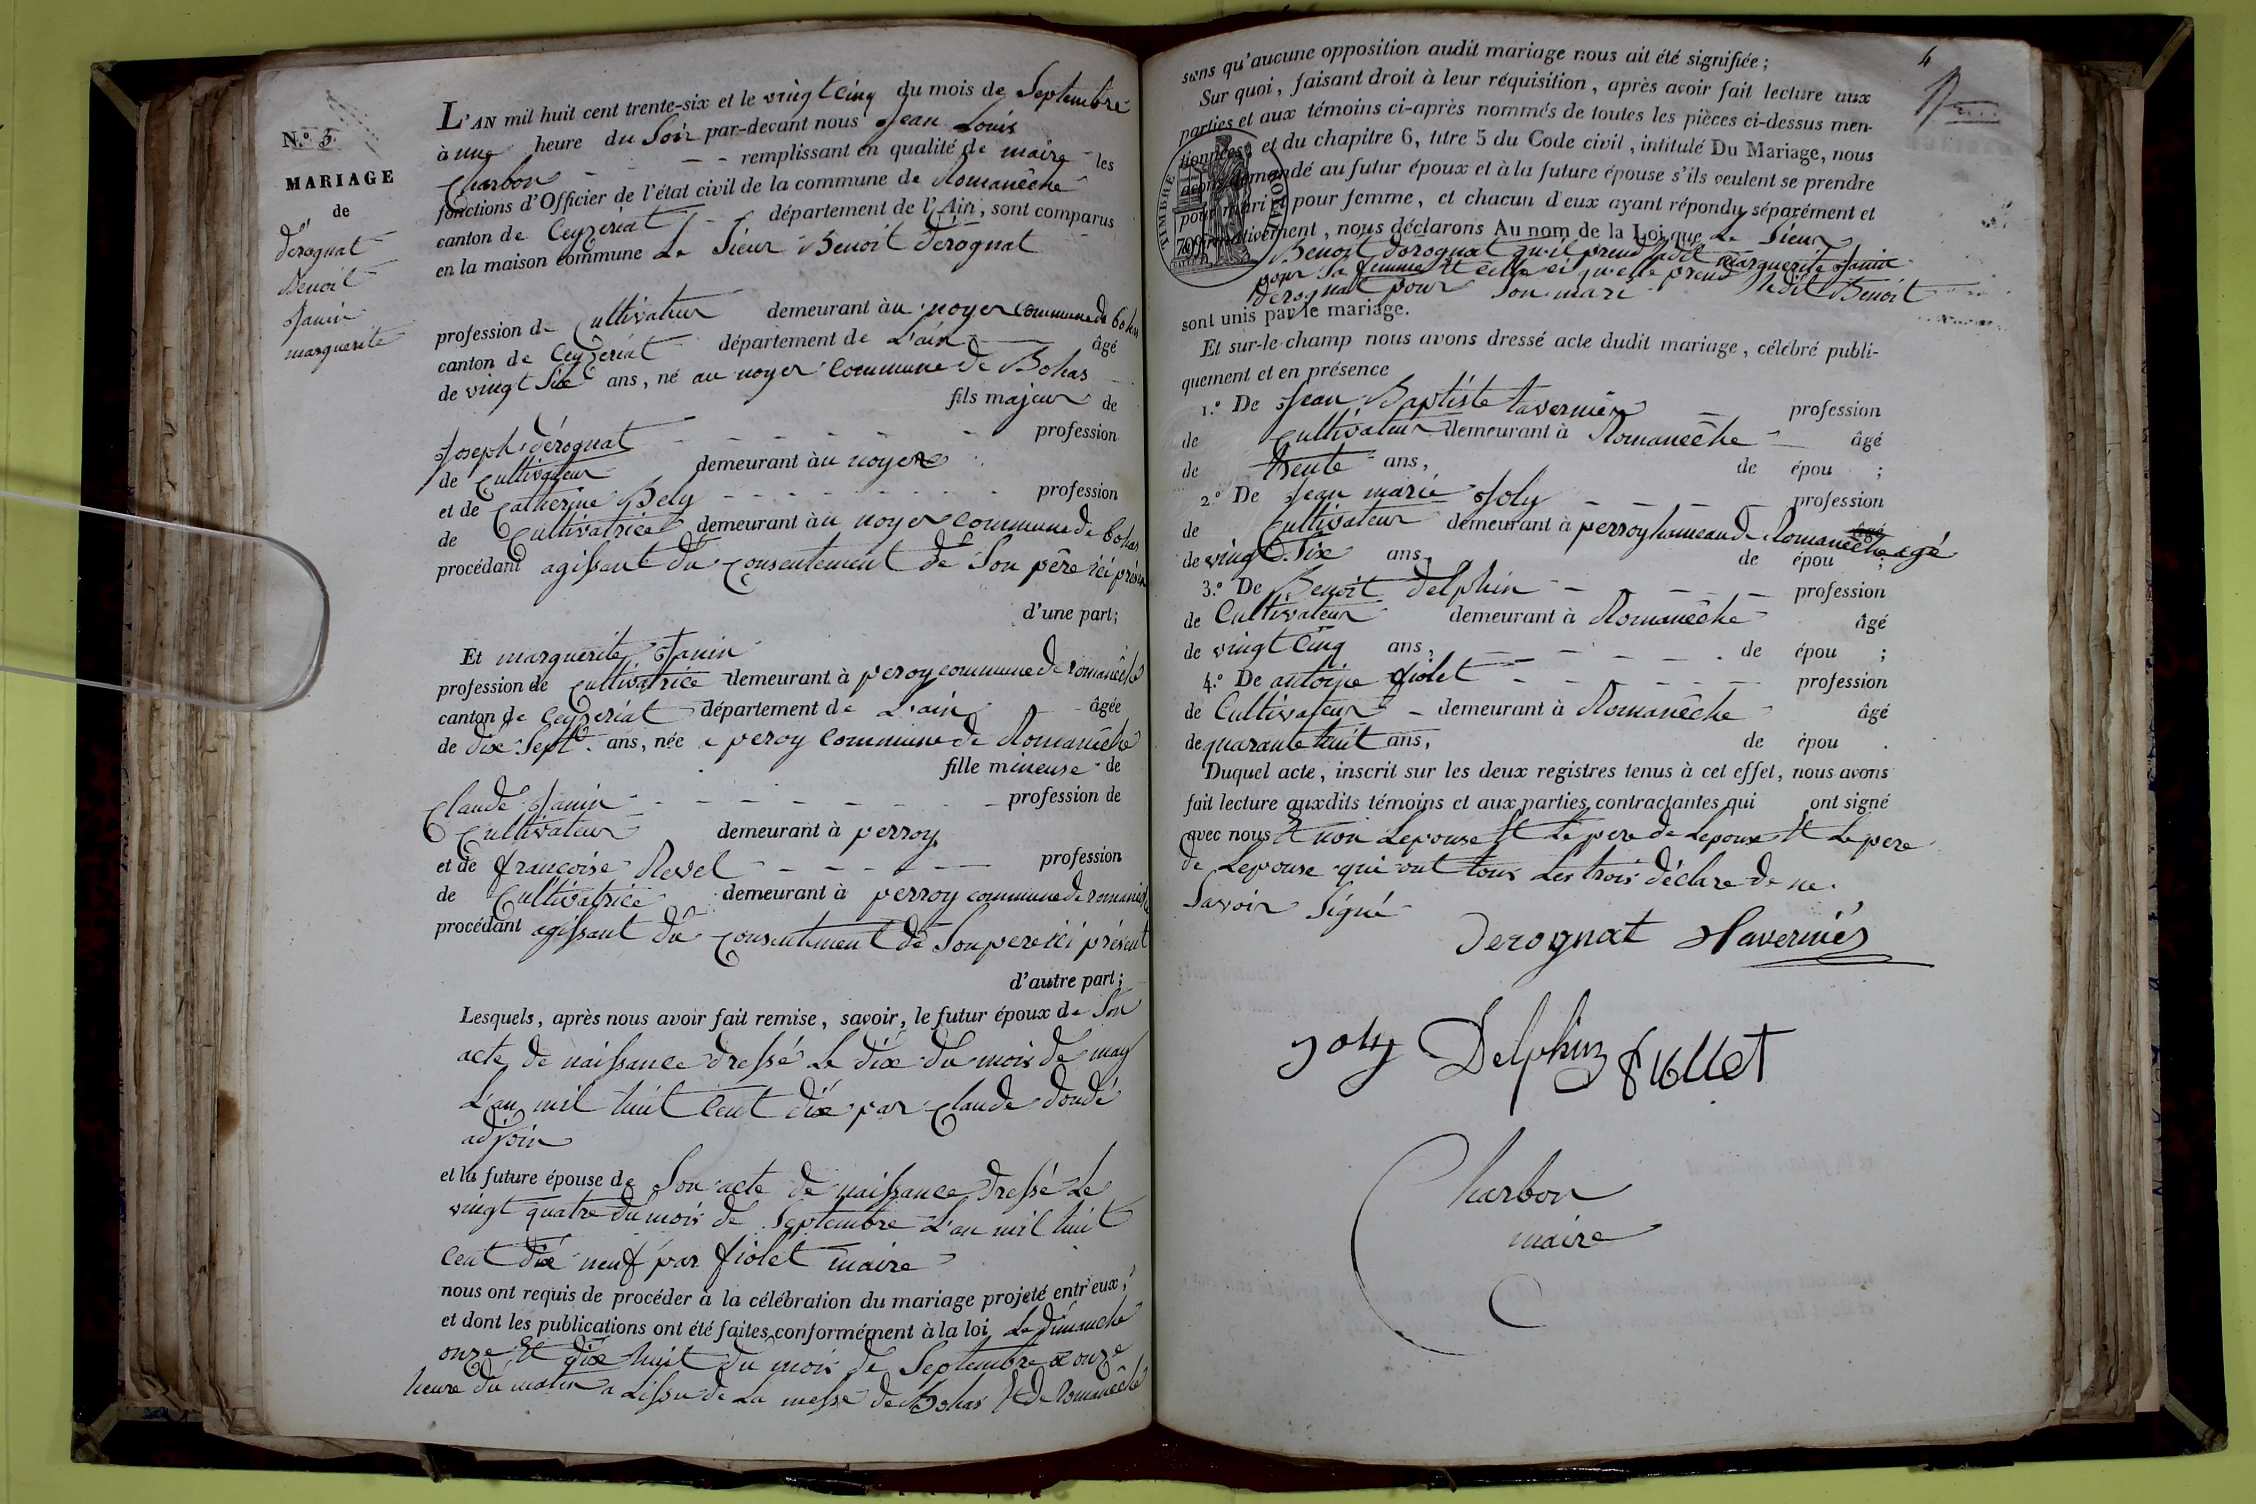 N.º 3.
MARIAGE
de
dérognat
Benoit
Janin
marguerite
L'AN mil huit cent trente-six et le vingt cinq du mois de Septembre
à une heure du Soir par-devant nous Jean Louis
Charbon - - - remplissant en qualité de maire les
fonctions d'Officier de l'état civil de la commune de Romanêche
canton de Ceyzeriat département de l'Ain, sont comparus
en la maison commune Le Sieur Benoit dérognat
profession de Cultivateur demeurant àu noyer commune de bohas
canton de Ceyzeriat département de L'ain âgé
de vingt Six ans, né au noyer Commune de Bohas
fils majeur de
Joseph dérognat - - - - - - profession
de Cultivateur demeurant àu noyer
et de Catherine Bely - - - - - - profession
de Cultivatrice demeurant àu noyer commune de bohas
procédant agissant du Consentement de Son père ici présent
d'une part;
Et marguerite Janin
profession de cultivatrice demeurant à peroy commune de romanêche
canton de Ceyzeriat département de L'ain - âgée
de dix Sept ans, née a peroy Commune de Romanêche
fille mineuse de
Claude Janin - - - - - - - profession de
Cultivateur demeurant à perroy
et de françoise Revel - - - - - profession
de Cultivatrice demeurant à perroy commune de romanêche
procédant agissant du Consentement de Son pere ici présent
d'autre part;
Lesquels, après nous avoir fait remise, savoir, le futur époux de Son
acte de naissance dressé Le dix du mois de may
L'an mil huit Cent dix par Claude doudé
adjoin
et la future épouse de Son acte de naissance dressé Le
vingt quatre du mois de Septembre L'an mil huit
Cent dix neuf par fiolet maire
nous ont requis de procéder à la célébration du mariage projeté entr'eux,
et dont les publications ont été faites conformément à la loi Le dimanche
onze Et dix huit du mois de Septembre a onze
heure du matin a Lissu de La messe de Bohas Et de Romanêche
4
sans qu'aucune opposition audit mariage nous ait été signifiée;
Sur quoi, faisant droit à leur réquisition, après avoir fait lecture aux
parties et aux témoins ci-après nommés de toutes les pièces ci-dessus men-
tionnées, et du chapitre 6, titre 5 du Code civil, intitulé Du Mariage, nous
avons demandé au futur époux et à la future épouse s'ils veulent se prendre
pour mari et pour femme, et chacun d'eux ayant répondu séparément et
affirmativement, nous déclarons Au nom de la Loi que Le Sieur
Benoit dérognat qu'il prend ladite marguerite Janin
pour Sa femme Et Celle ci qu'elle prend ledit Benoit
dérognat pour Son mari
sont unis par le mariage.
TIMBRE ROYAL
Et sur-le-champ nous avons dressé acte dudit mariage, célébré publi-
quement et en présence
1.º De Jean Baptiste tavernier - profession
de Cultivateur demeurant à Romanêche - âgé
de trente ans, de épou ;
2.º De Jean marie Joly - - - - profession
de Cultivateur demeurant à perroy hameau de Romanêche agé
de vingt Six ans, de épou ;
3.º De Benoit delphin - - - - profession
de Cultivateur demeurant à Romanêche âgé
de vingt Cinq ans, - - - - de épou ;
4.º De antoine fiolet - - - - - profession
de Cultivateur - demeurant à Romanêche âgé
de quarante huit ans, de épou .
Duquel acte, inscrit sur les deux registres tenus à cet effet, nous avons
fait lecture auxdits témoins et aux parties contractantes qui ont signé
avec nous Et non Lepouse Et Le pere de Lepoux Et Le pere
de Lepouse qui ont tous Les trois déclare de ne
Savoir Signé
Derognat Tavernier
Joly Delphin fiollet
Charbon
maire